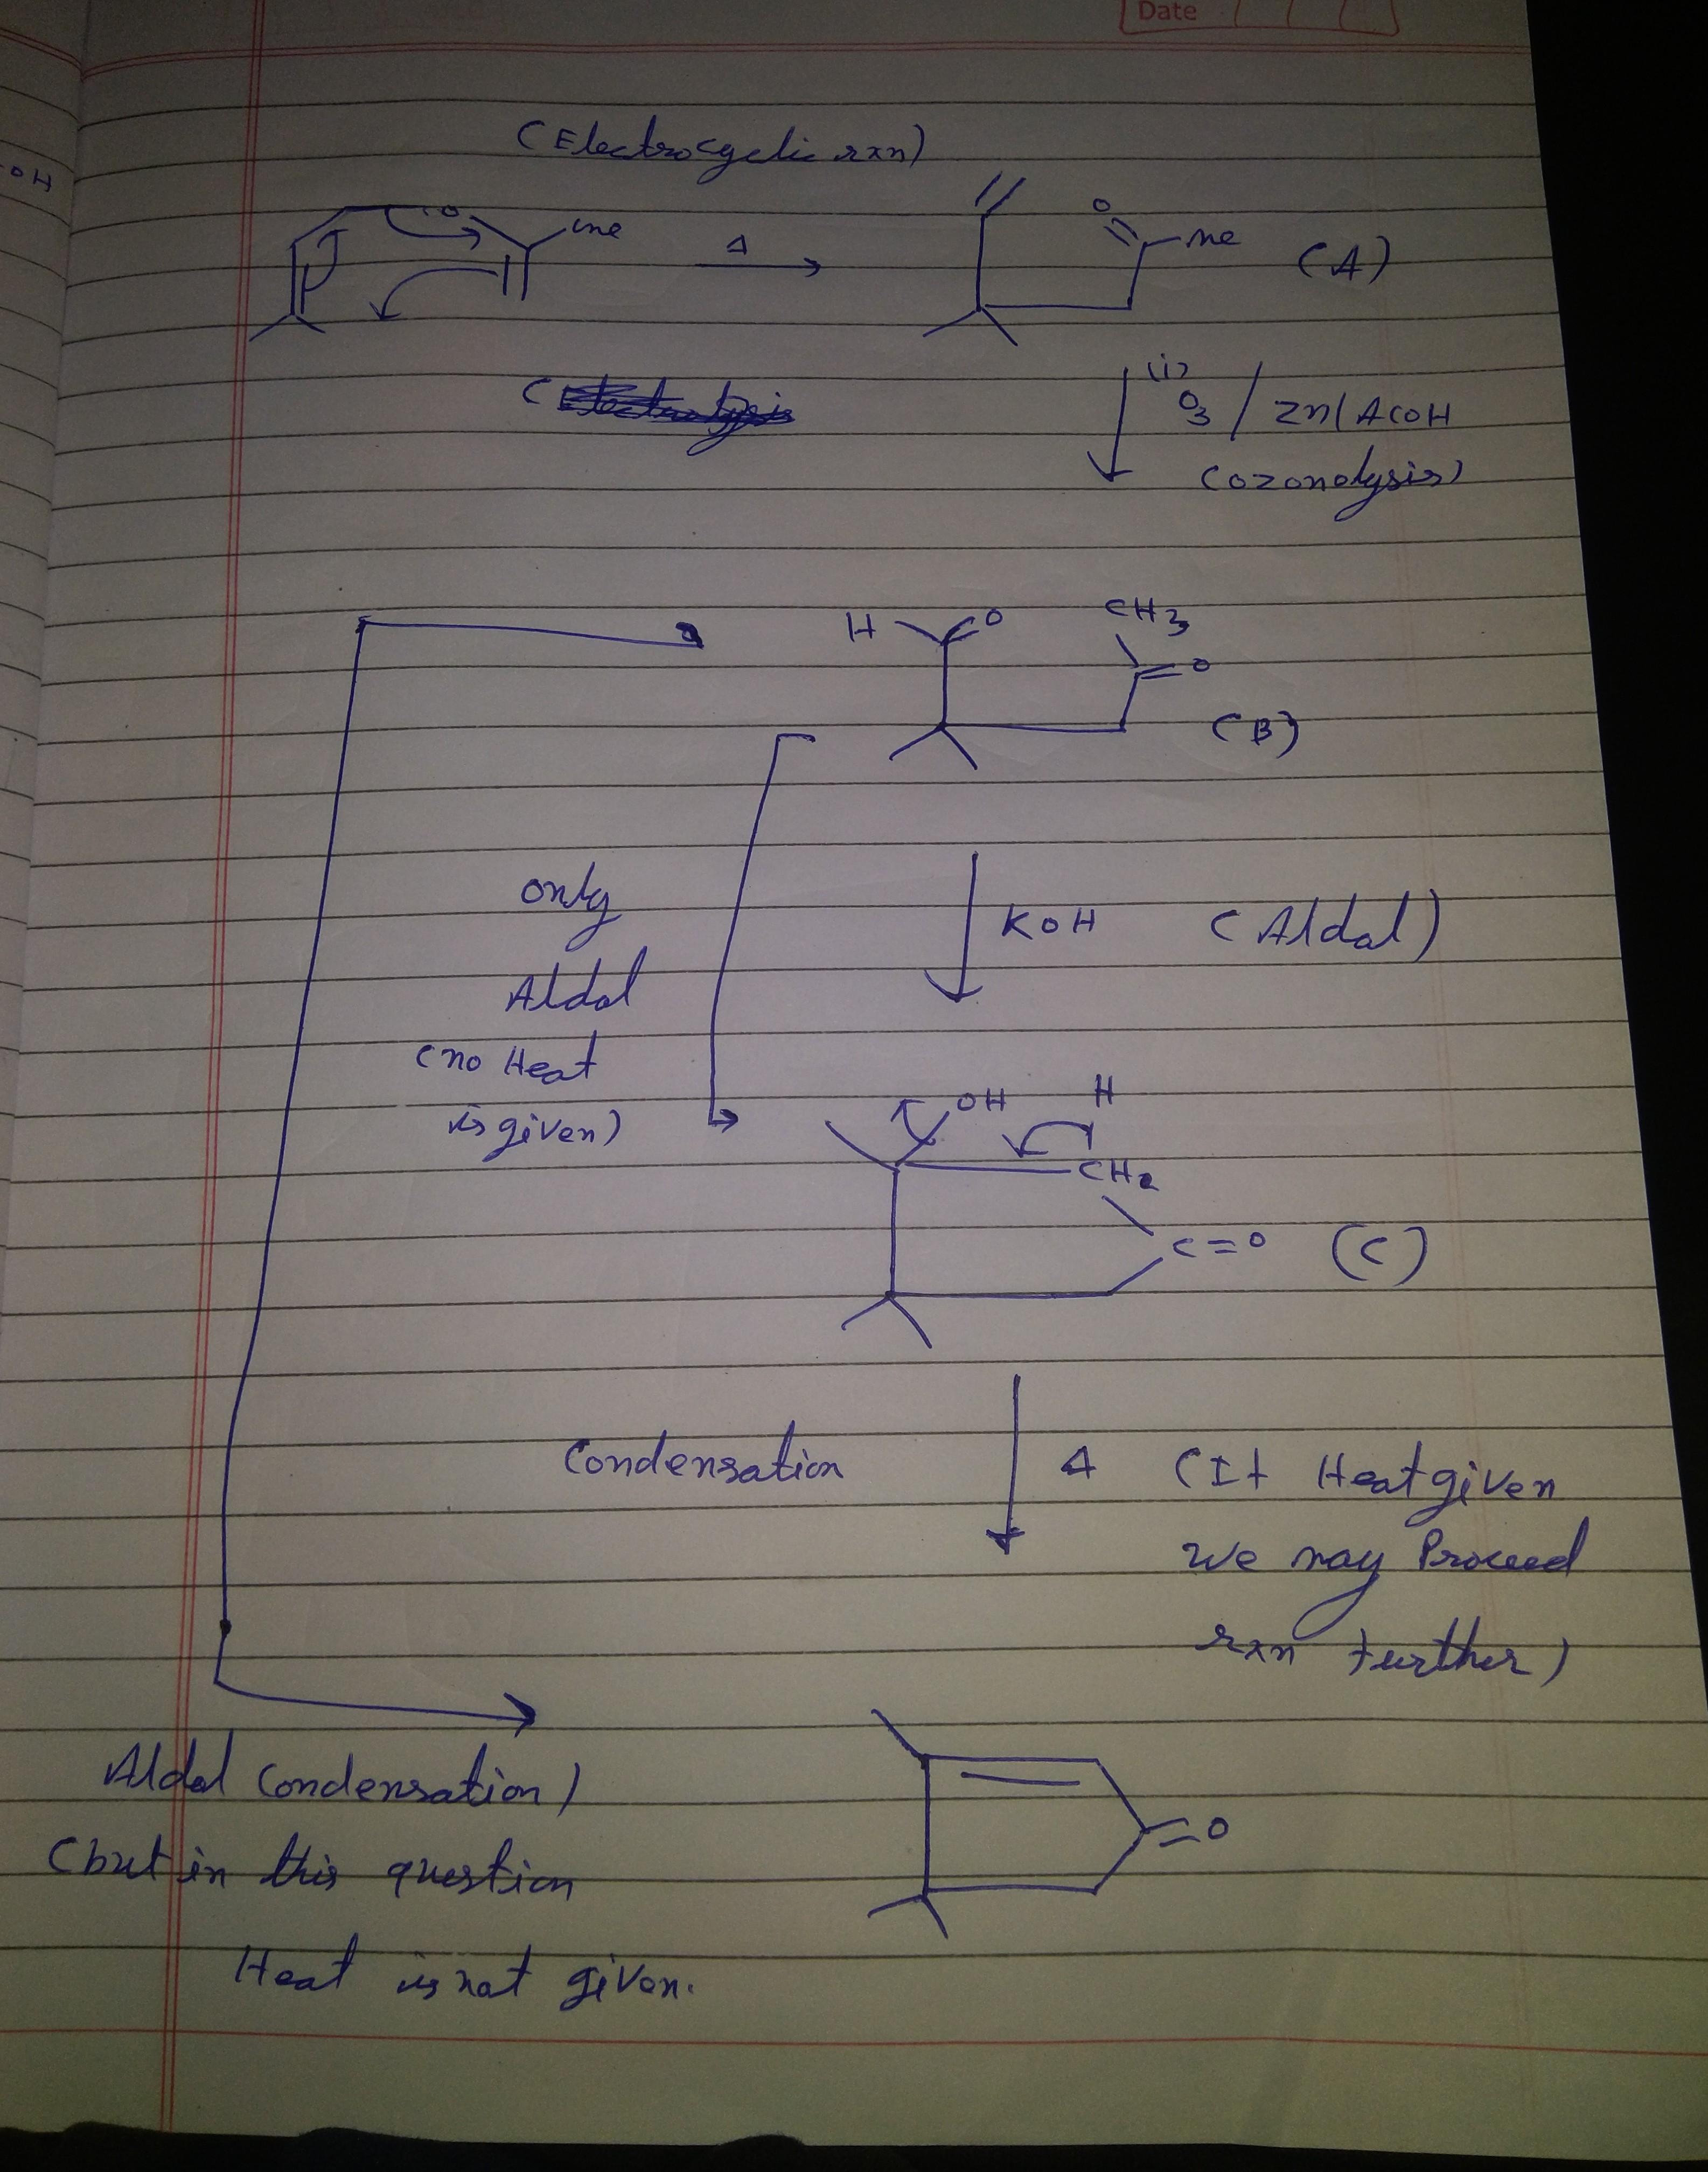 Date
OH
(Electrocyclic rxn)
O
me
Δ
O
me
(A)
(i)
O3 / Zn/AcOH
(ozonolysis)
H
O
CH3
O
(B)
only
Aldol
(no Heat
is given)
KOH
(Aldol)
OH
H
CH2
C=O
(C)
Condensation
Δ
(If Heat given
we may Proceed
rxn further)
Aldol Condensation)
(but in this question
Heat is not given.
O